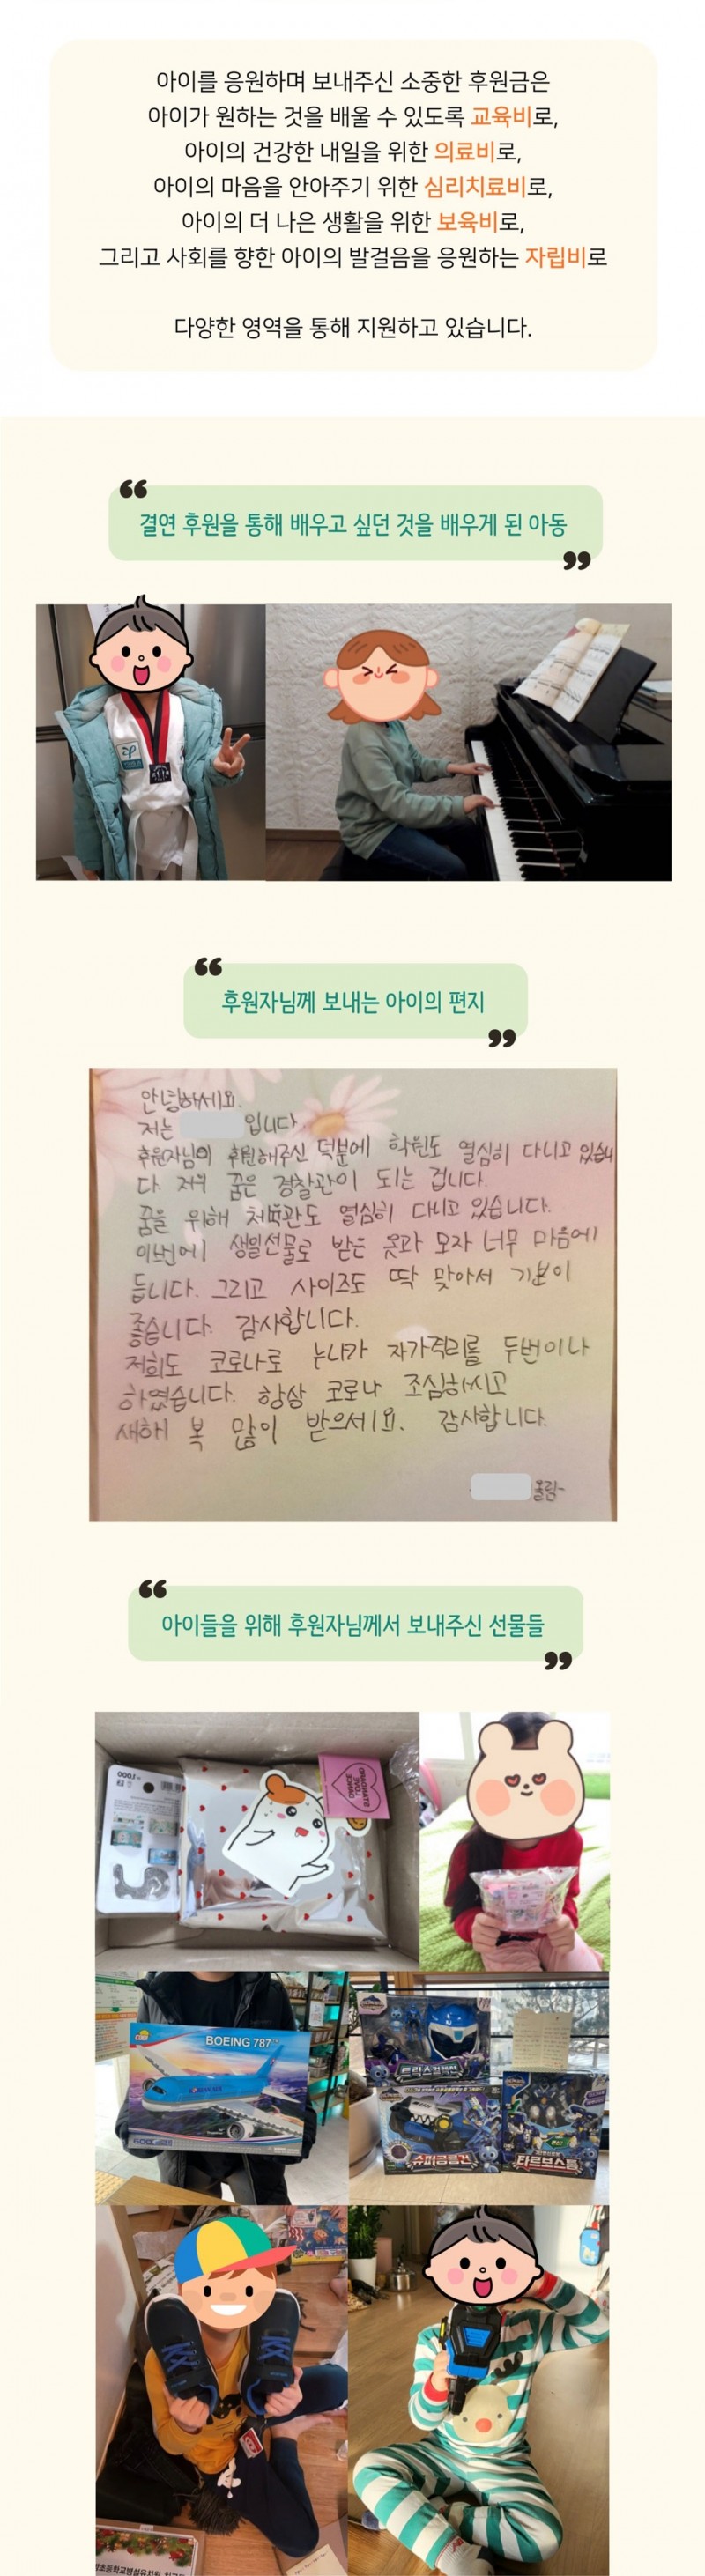 아이를 응원하며 보내주신 소중한 후원금은
아이가 원하는 것을 배울 수 있도록 교육비로,
아이의 건강한 내일을 위한 의료비로,
아이의 마음을 안아주기 위한 심리치료비로,
아이의 더 나은 생활을 위한 보육비로,
그리고 사회를 향한 아이의 발걸음을 응원하는 자립비로
다양한 영역을 통해 지원하고 있습니다.
“
결연 후원을 통해 배우고 싶던 것을 배우게 된 아동
”
“
후원자님께 보내는 아이의 편지
”
안녕하세요.
저는 입니다.
후원자님이 후원해주신 덕분에 학원도 열심히 다니고 있습니
다 저의 꿈은 경찰관이 되는 겁니다.
꿈을 위해 체육관도 열심히 다니고 있습니다.
이번에 생일선물로 받은 옷과 모자 너무 마음에
듭니다. 그리고 사이즈도 딱 맞아서 기분이
좋습니다. 감사합니다.
저희도 코로나로 누나가 자가격리를 두번이나
하였습니다. 항상 코로나 조심하시고
새해 복 많이 받으세요. 감사합니다.
올림-
“
아이들을 위해 후원자님께서 보내주신 선물들
”
BOEING 787
KOREAN AIR
슈퍼공룡건
타르보스톰